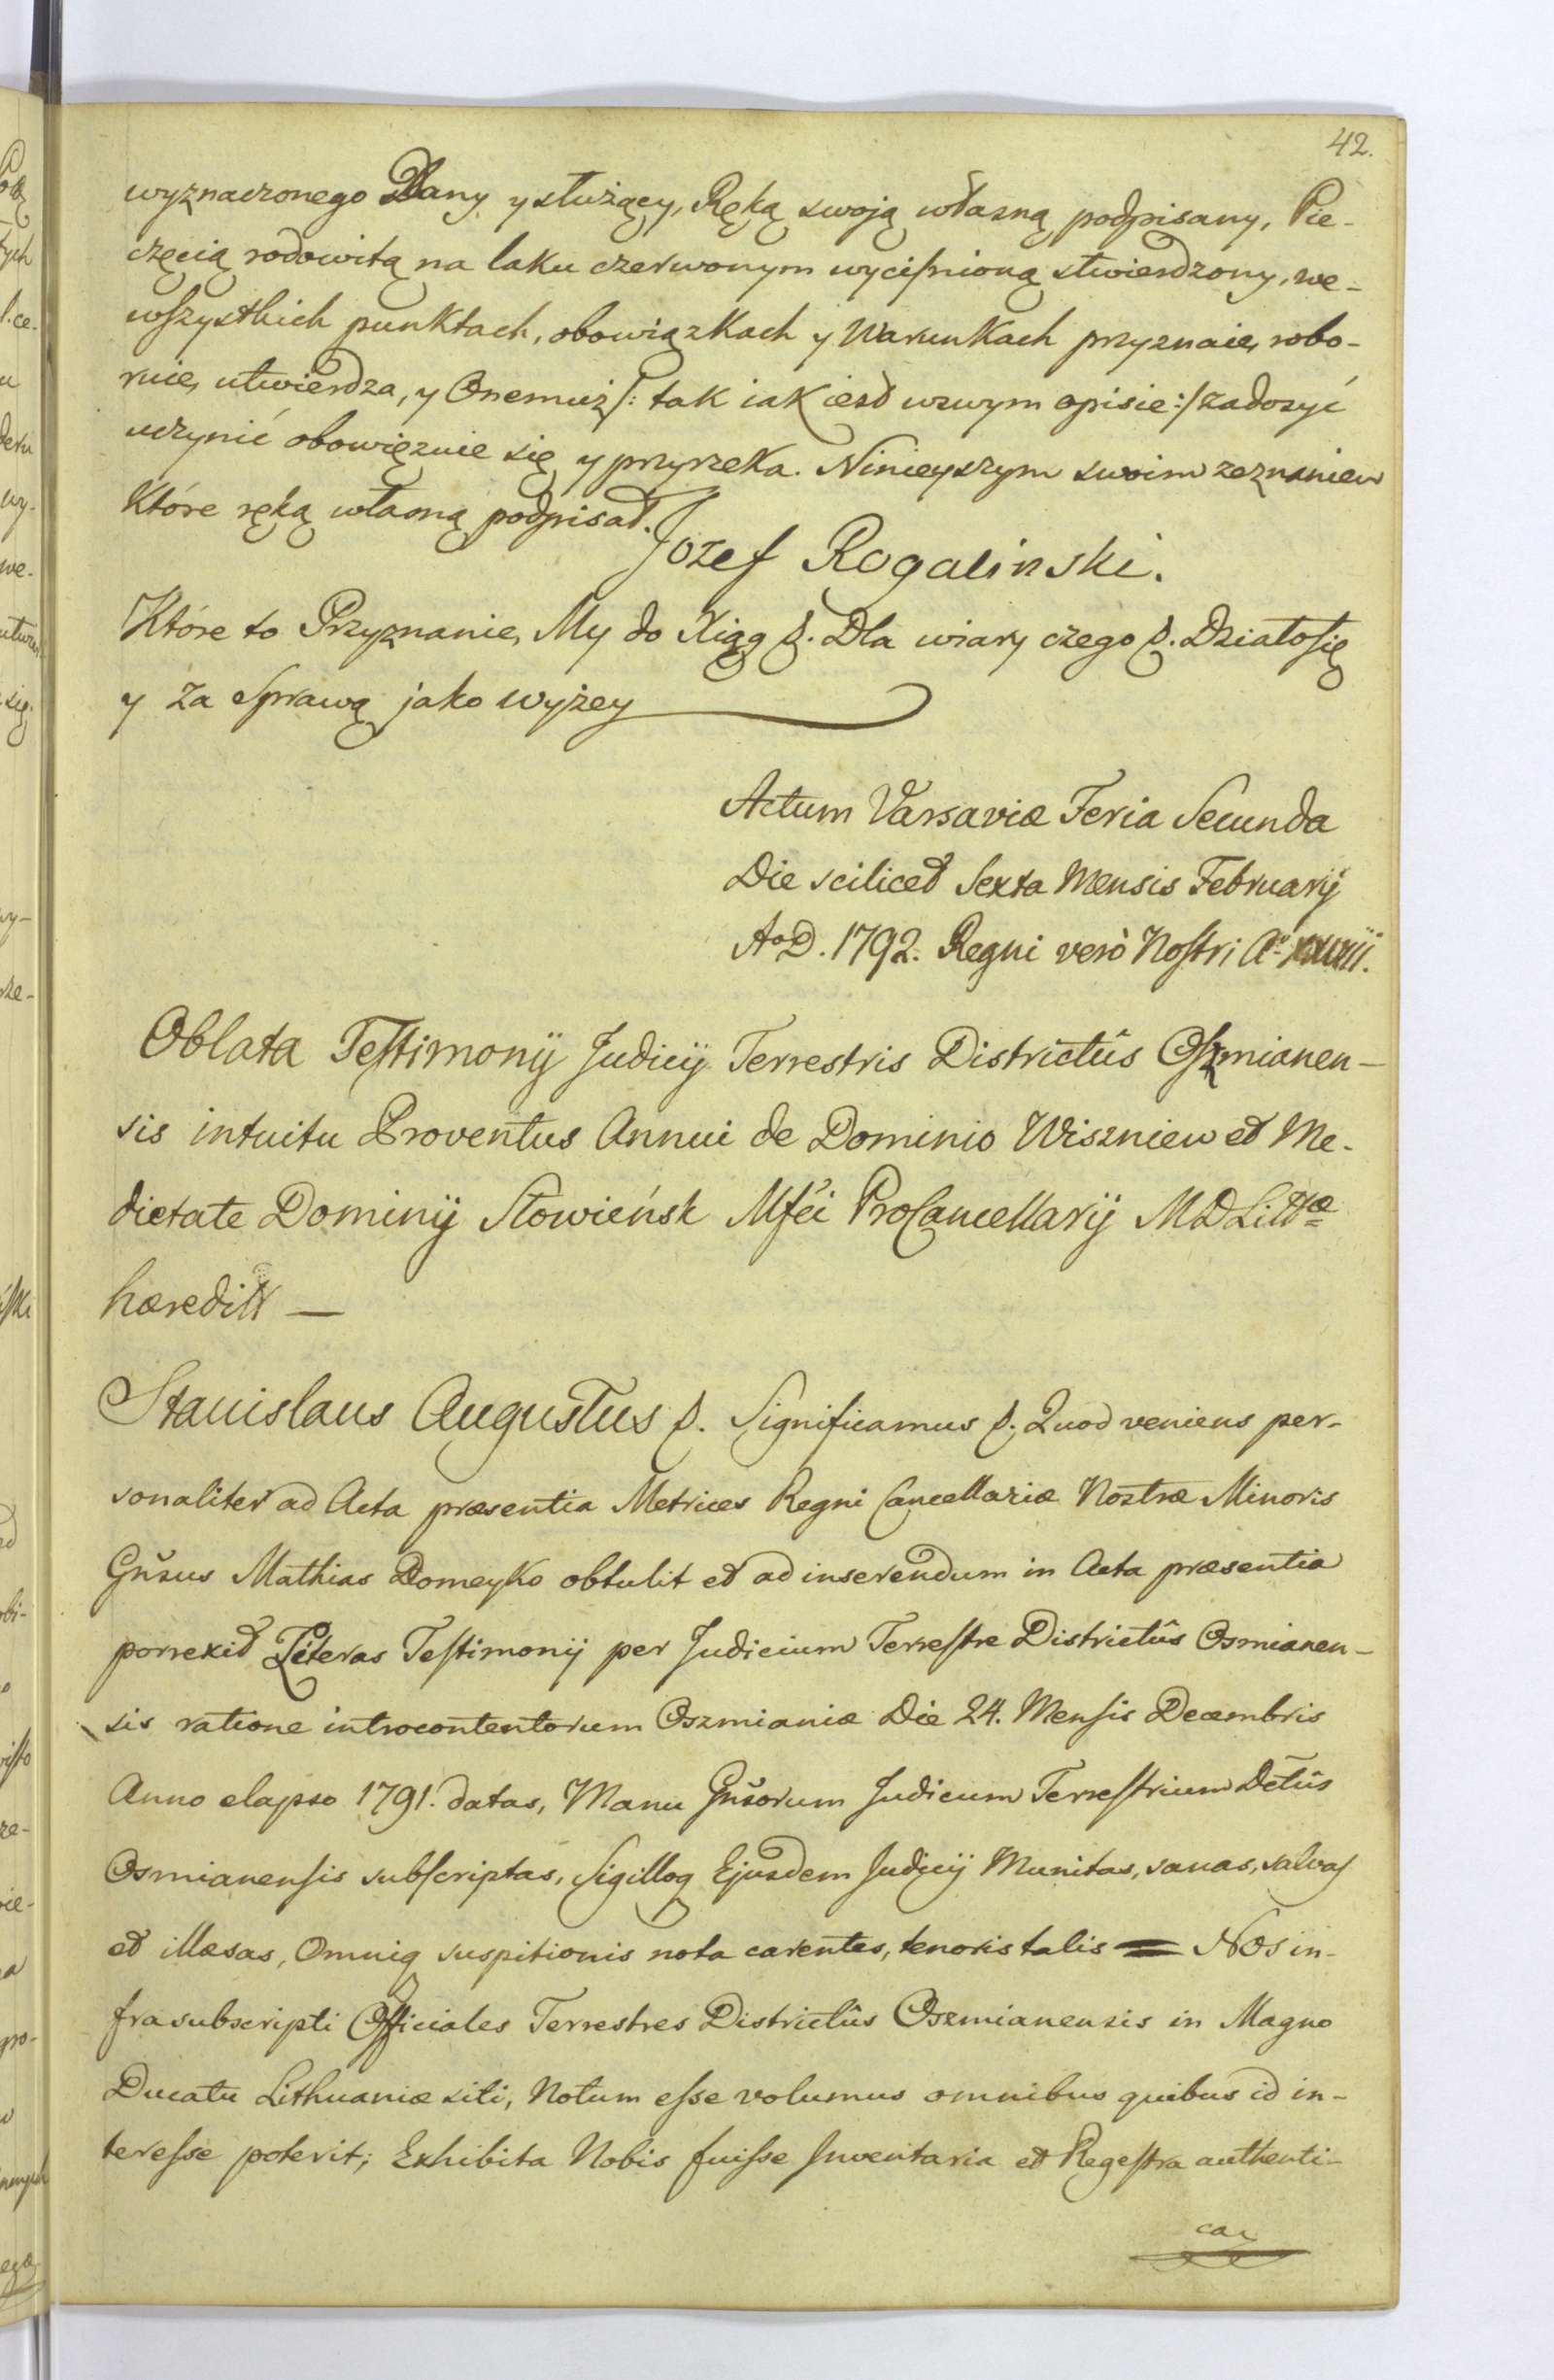 42.
wyznaczonego Dany y służący, Ręką swoją własną podpisany, Pie-
częcią rodowitą na laku czerwonym wyciſnioną stwierdzony, we-
wſzystkich punktach, obowiązkach y Warunkach przyznaie, robo-
ruie, utwierdza, y Onemuż /: tak iak iest wswym opisie :/ zadosyć
uczynić obowięzuie się y przyrzeka. Ninieyszym swoim zeznaniem
Które ręką własną podpisał.
Jozef Rogalinski.
Które to Przyznanie, My do Xiąg &. Dla wiary czego &. Działoſię
y za Sprawą jako wyżey
Actum Varsaviæ Feria Secunda
Die scilicet Sexta Mensis Februarij
AoD. 1792. Regni verò Noſtri Ao
Oblata Teſtimonij Judicij Terrestris Districtûs Oſzmianen-
sis intuitu Proventus Annui de Dominio Wiszniew et Me-
dietate Dominij Słowieńsk Mfći ProCancellarij MDLittæ
hæreditt —
Stanislaus Augustus &. Significamus &. Quod veniens per-
sonaliter ad Acta præsentia Metrices Regni Cancellariæ Nostræ Minoris
Gñsus Mathias Domeyko obtulit et ad inserendum in Acta præsentia
porrexit Literas Teſtimonij per Judicium Terreſtre Districtûs Osmianen-
sis ratione introcontentorum Oszmianiæ Die 24. Menſis Decembris
Anno elapso 1791. datas, Manu Gñsorum Judicum Terreſtrium Dctûs
Osmianenſis subſcriptas, Sigilloq Ejusdem Judicij Munitas, sanas, salvas
et illæsas, Omniq suspitionis nota carentes, tenoris talis = Nos in-
frasubscripti Officiales Terrestres Districtûs Oszmianensis in Magno
Ducatu Lithuaniæ siti, Notum eſse volumus omnibus quibus id in-
tereſse poterit; Exhibita Nobis fuiſse Inventaria et Regeſtra authenti-
ca